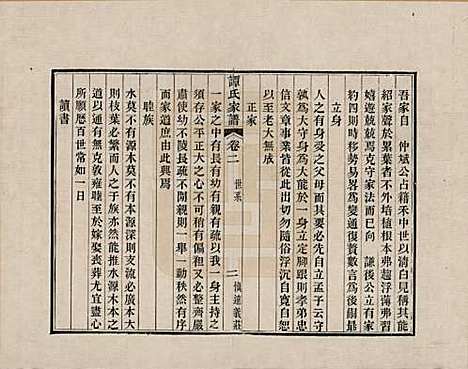 吾家自　仲斌公占籍禾中世以清白見稱其能
紹家聲於累葉者不外培植根本無趨浮薄弗習
嬉遊兢兢焉克守家法而已向　謙後公立有家
約四則時移勢易爲變通復贅數言爲
立身
人之有身受之父母而其責則在我一身孟子云守
孰爲大守身爲大能於一身上立定腳跟則孝弟忠
信文章事業皆從此出切勿隨俗浮沉自寬自恕
以至老大無成
正家
譚氏家譜
卷二
世系
二
慎遠義莊
一家之中有長有幼有親有疏以我一身主持其間
須存公平正大之心不可稍有偏袒又必整齊嚴
肅使幼不陵長疏不閒親則一舉一動秩然有序
而家道庶由此興焉
睦族
水莫不有源木莫不有本源深則支流必遠本固
則枝葉必繁而人之于族亦然能推水源木本之
道以通有無克敦雍睦至於嫁娶喪葬尤宜盡心
所願歷百世常如一日
讀書